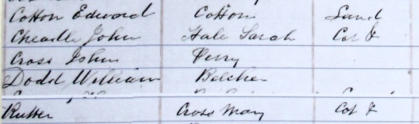 Cotton Edward Cottons Land
Cheadle John Hale Sarah Cot &
Cross John Perry
Dodd William Belcher
Rutter Cross Mary Cot &